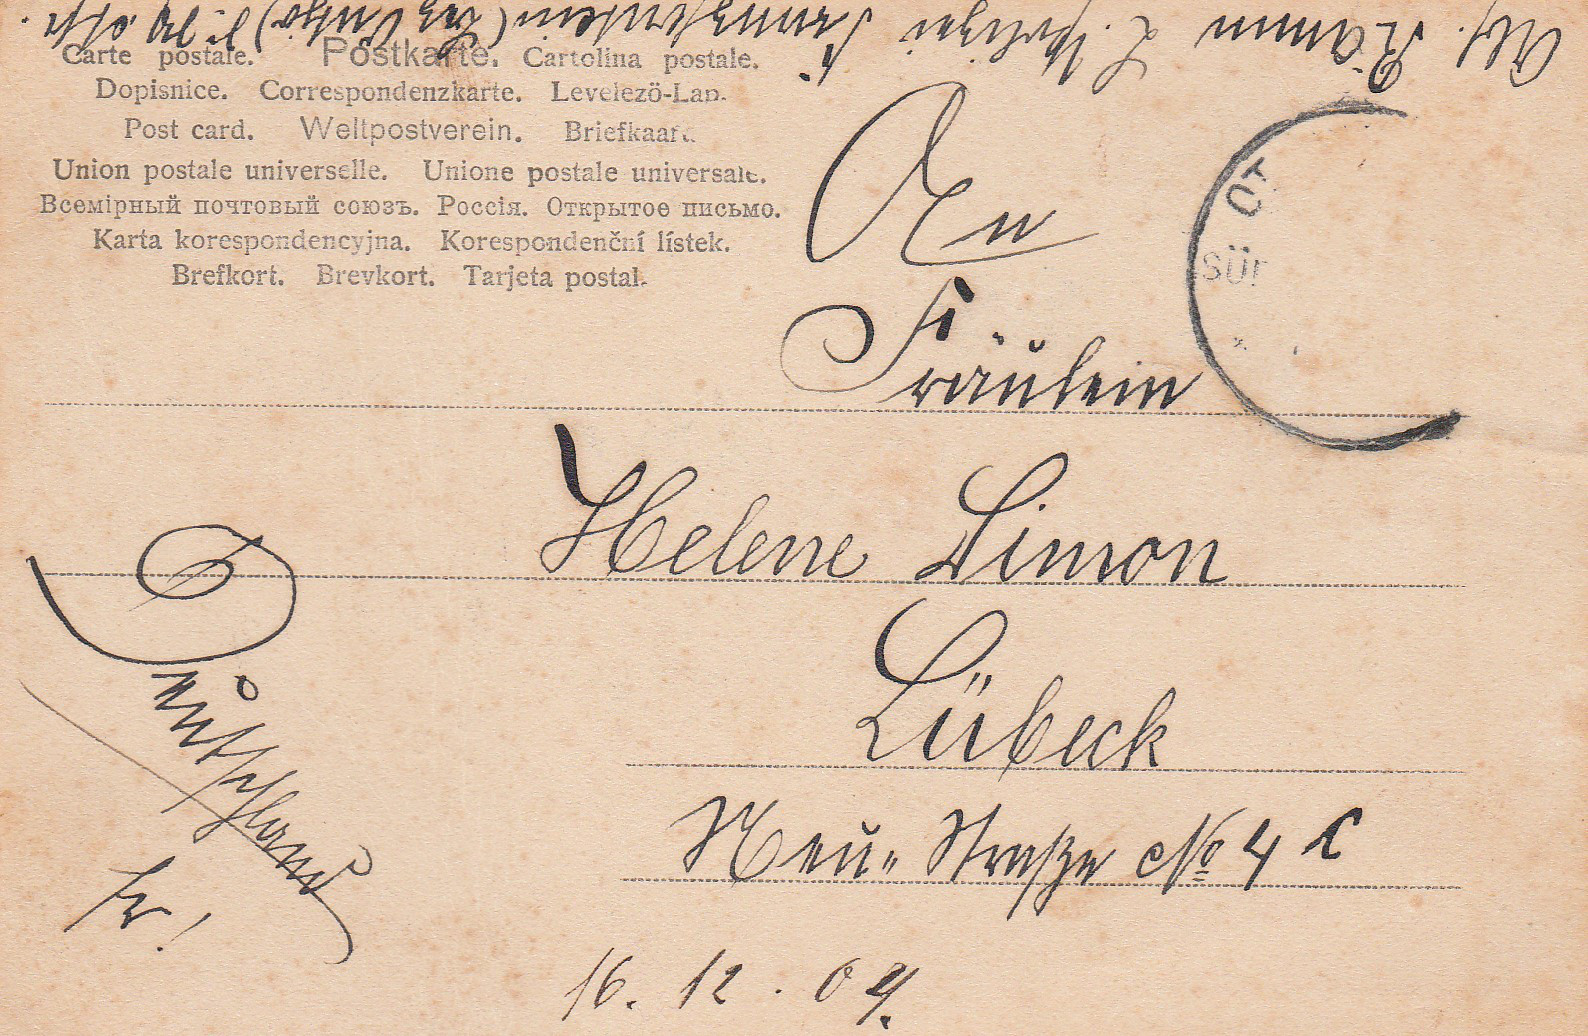 Carte postale. Postkarte. Cartolina postale.
Dopisnice. Correspondenzkarte. Levelező-Lap.
Post card. Weltpostverein. Briefkaart.
Union postale universelle. Unione postale universale.
Всемірный почтовый союзъ. Россія. Открытое письмо.
Karta korespondencyjna. Korespondenční lístek.
Brefkort. Brevkort. Tarjeta postal.
An
Fräulein
Helene Simon
Lübeck
Neu-Straße No 4 c
Deutschland
fr!
16. 12. 04.
OT
SÜ